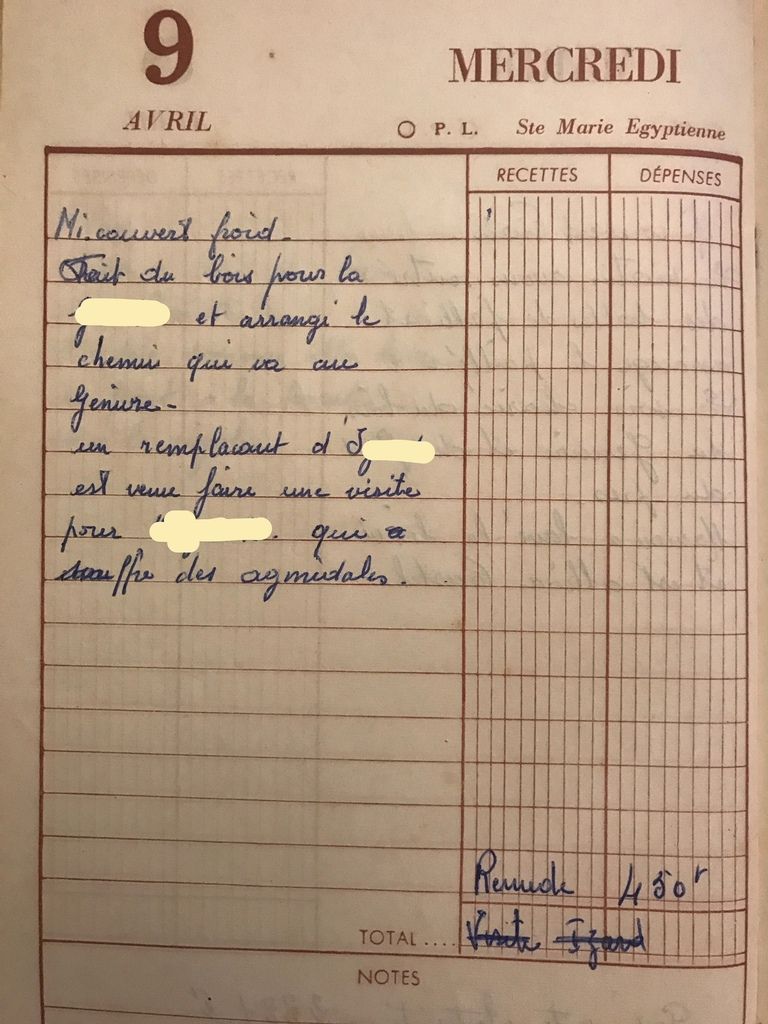 9 MERCREDI
AVRIL P. L. Ste Marie Egyptienne
RECETTES DÉPENSES
Mi. couvert froid.
Fait du bois pour la
et arrangi le
chemin qui va au
Geniure-
un remplacant d'
est venu faire une visite
pour qui a
souffre des agmidales.
Remede 450 F
TOTAL .... Visite Izard
NOTES